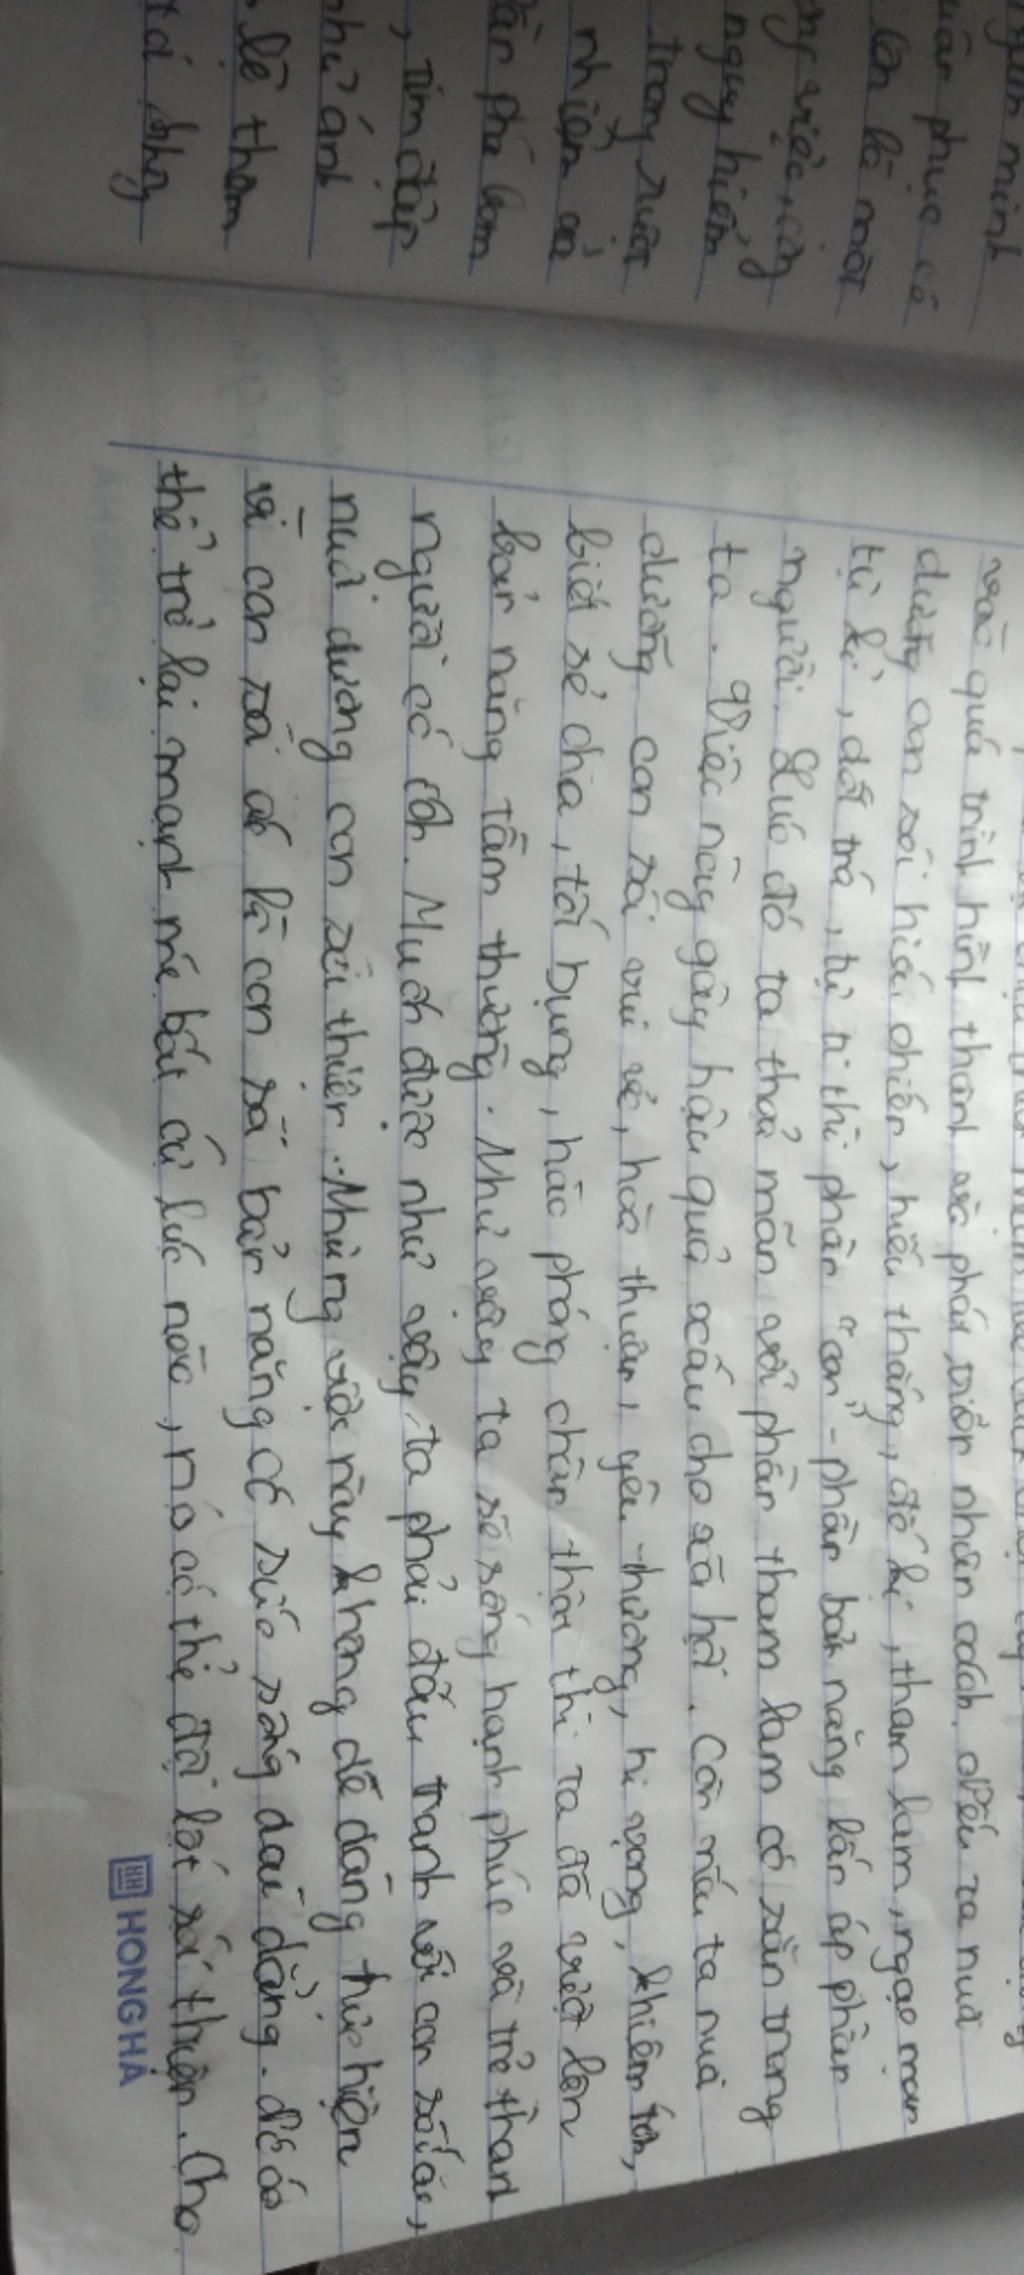 nguyên minh
phục có
lớn là một
việc, càng
nguy hiểm
trong suốt
nhiên và
phá lam
, Tim đập
như ánh
lẽ tham
và quá trình hình thành và phát triển nhân cách. Nếu ta nuôi
dưỡng con sói hiếu chiến, hiếu thắng, đố kị, tham lam, ngạo mạn
tự kỉ, dối trá, tự ti thì phần "con" - phần bản năng lấn áp phần
người. Lúc đó ta thoả mãn với phần tham lam có sẵn trong
ta. Việc này gây hậu quả xấu cho xã hội. Còn nếu ta nuôi
dưỡng con sói vui vẻ, hòa thuận, yêu thương, hi vọng, khiêm tốn,
biết sẻ chia, tốt bụng, hào phóng chân thật thì ta đã vượt lên
bản năng tầm thường. Như vậy ta sẽ sống hạnh phúc và trở thành
người có ích. Muốn được như vậy ta phải đấu tranh với con sói ác,
nuôi dưỡng con sói thiện. Nhưng việc này không dễ dàng thực hiện
vì con sói ác là con sói bản năng có sức sống dai dẳng. Để có
thể trở lại mạnh mẽ bất cứ lúc nào, nó có thể đội lốt sói thiện. Cho
HONG HA